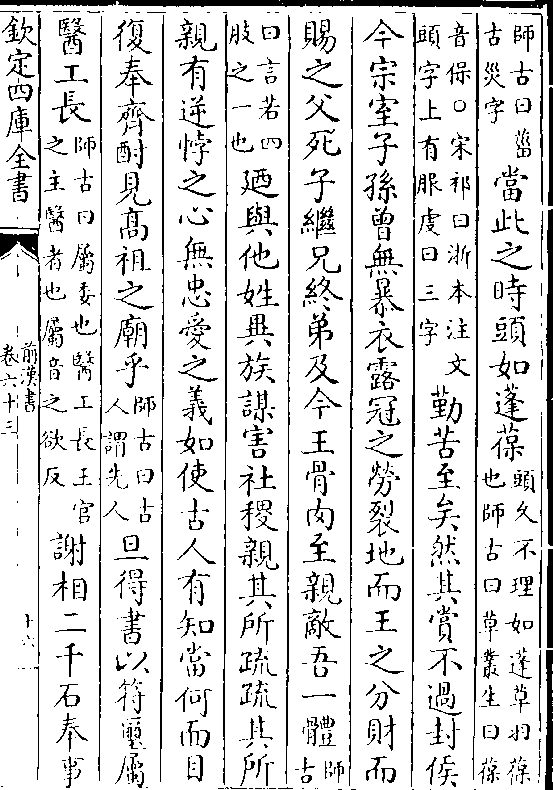 師古曰葘
古災字
當此之時頭如蓬葆
頭久不理如蓬草羽葆
也師古曰草叢生曰葆
音保○宋祁曰浙本注文
頭字上有服虔曰三字
勤苦至矣然其賞不過封侯
今宗室子孫曾無暴衣露冠之勞裂地而王之分財而
賜之父死子繼兄終弟及今王骨肉至親敵吾一體
師古
曰言若四
肢之一也
廼與他姓異族謀害社稷親其所疏疏其所
親有逆悖之心無忠愛之義如使古人有知當何面目
復奉齊酎見髙祖之廟乎
師古曰古
人謂先人
旦得書以符璽屬
醫工長
師古曰屬委也醫工長王官
之主醫者也屬音之欲反
謝相二千石奉事
欽定四庫全書
前漢書
卷六十三
十六